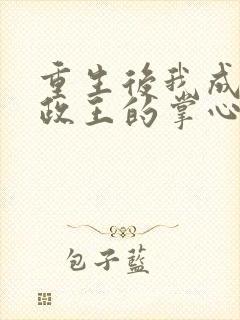 重生後我成
政王的掌心
包子藍